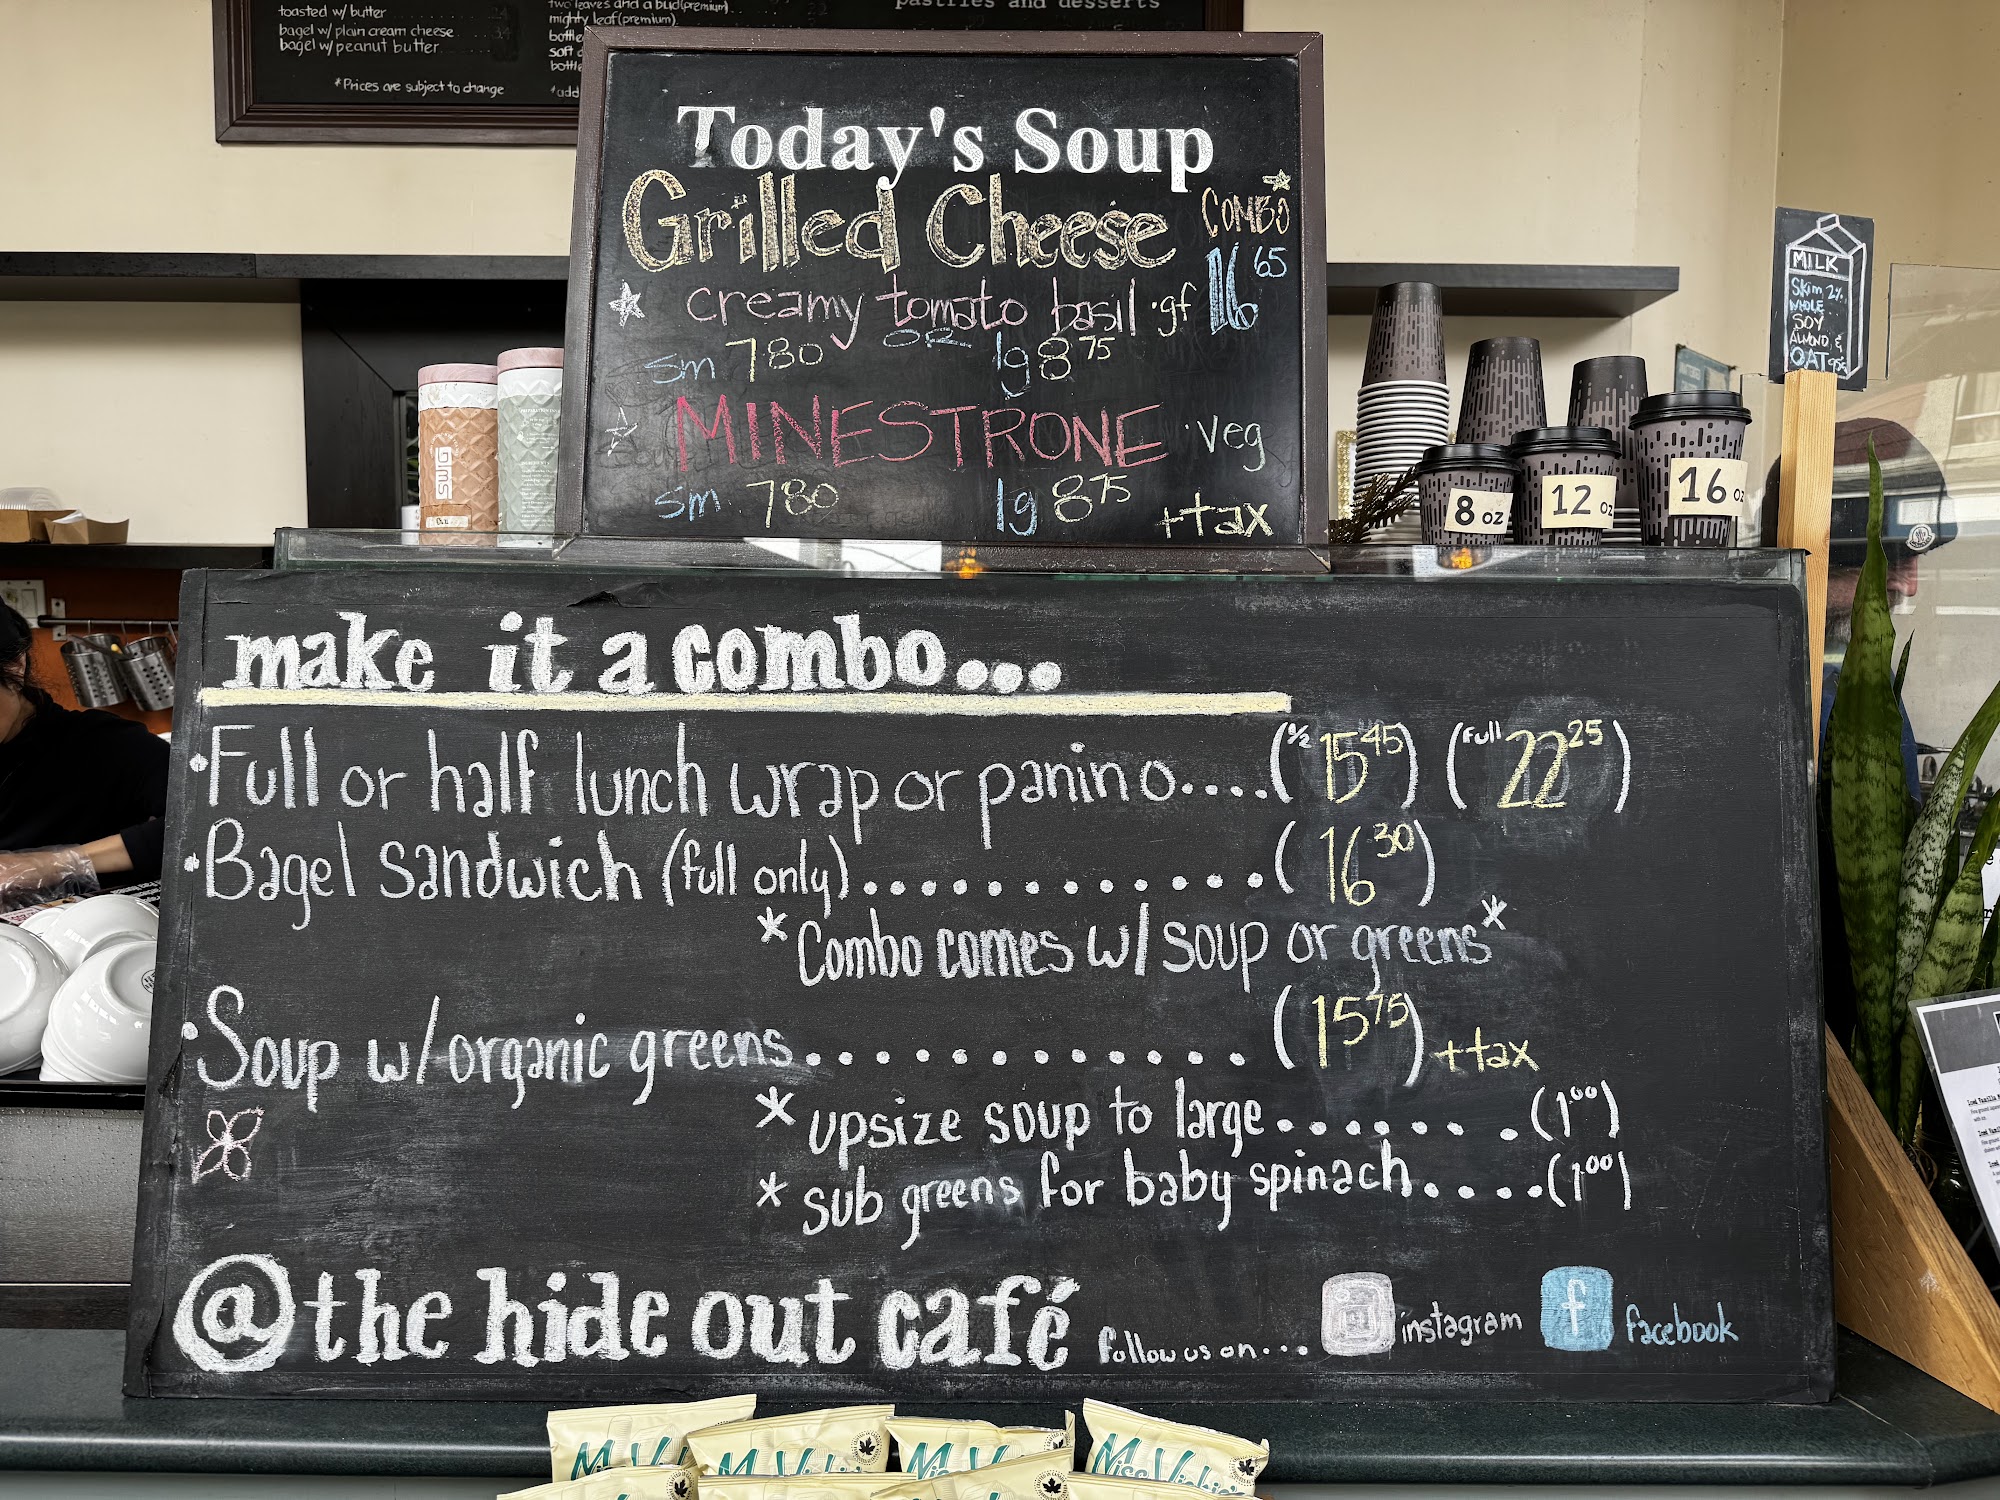 toasted w/ butter
bagel w/ plain cream cheese
bagel w/ peanut butter
*Prices are subject to change
two leaves and a bud(premium)
mighty leaf(premium)
pastries and desserts
Today's Soup
Grilled Cheese COMBO 16 65
creamy tomato basil ·gf
OR
sm 7 80 lg 8 75
MINESTRONE ·veg
sm 7 80 lg 8 75 +tax
MILK
Skim, 2%,
WHOLE
SOY
ALMOND &
OAT 95¢
SWIG
8 oz
12 oz
16 oz
make it a combo...
·Full or half lunch wrap or panino....(½ 15 45) (full 22 25)
·Bagel sandwich (full only).............( 16 30 )
*Combo comes w/ soup or greens*
·Soup w/organic greens............. (15 75) +tax
*upsize soup to large.......(1 00)
*sub greens for baby spinach....(1 00)
@the hide out café follow us on... instagram f facebook
Miss Vickie's